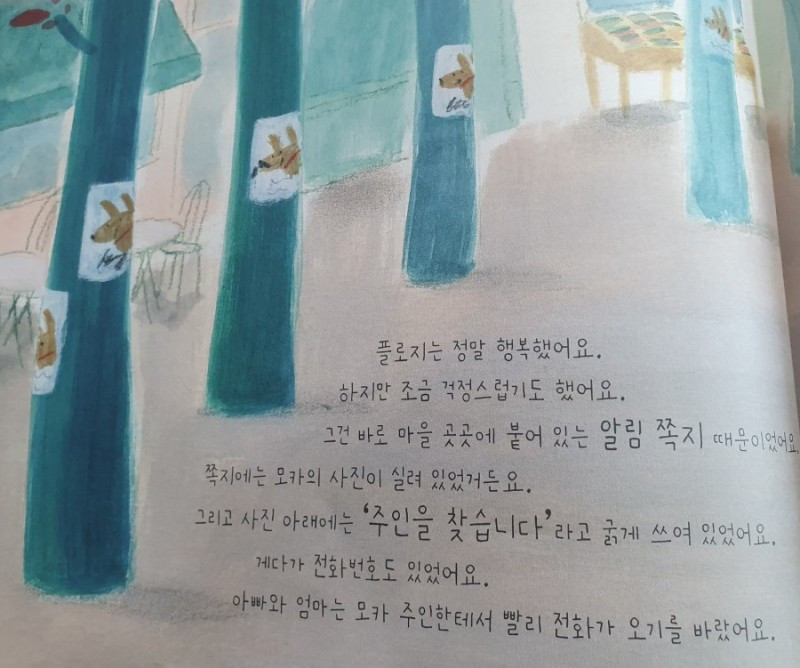 플로지는 정말 행복했어요.
하지만 조금 걱정스럽기도 했어요.
그건 바로 마을 곳곳에 붙어 있는 알림 쪽지 때문이었어요.
쪽지에는 모카의 사진이 실려 있었거든요.
그리고 사진 아래에는 '주인을 찾습니다'라고 굵게 쓰여 있었어요.
게다가 전화번호도 있었어요.
아빠와 엄마는 모카 주인한테서 빨리 전화가 오기를 바랐어요.